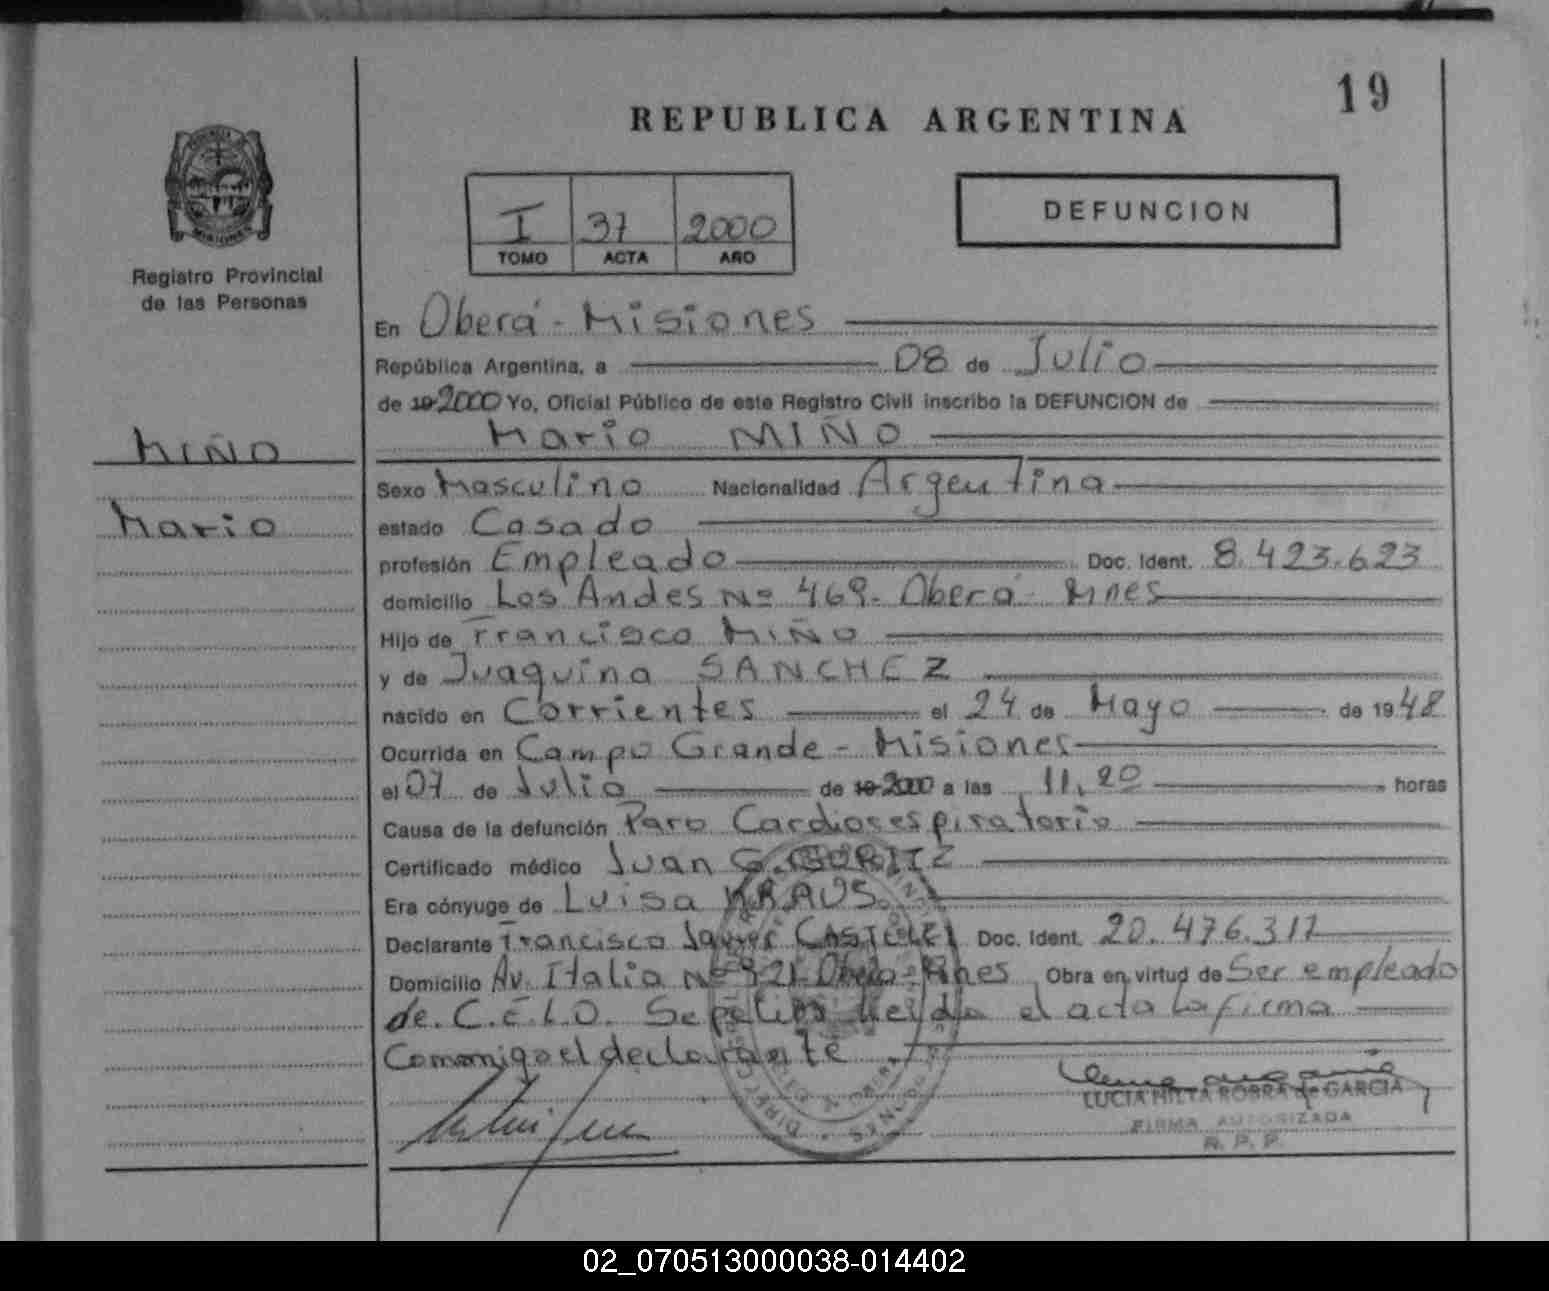 19
REPUBLICA ARGENTINA
I 37 2000
TOMO ACTA AÑO
DEFUNCION
MISIONES
Registro Provincial
de las Personas
En Oberá - Misiones
República Argentina, a 08 de Julio
de 19 2000 Yo, Oficial Público de este Registro Civil inscribo la DEFUNCION de
Mario MIÑO
MIÑO
Mario
Sexo Masculino Nacionalidad Argentina
estado Casado
profesión Empleado Doc. Ident. 8.423.623
domicilio Los Andes Nº 469- Oberá - Mnes
Hijo de Francisco MIÑO
y de Juaquina SANCHEZ
nacido en Corrientes el 24 de Mayo de 1948
Ocurrida en Campo Grande - Misiones
el 07 de Julio de 19 2000 a las 11,20 horas
Causa de la defunción Paro Cardiorespiratorio
Certificado médico Juan G.
Era cónyuge de Luisa KRAUS
Declarante Francisco Javier Doc. Ident. 20.476.317
Domicilio Av. Italia Nº 321- Oberá - Mnes Obra en virtud de Ser empleado
de. C.E.L.O. Sepelios leida el acta la firma
Comonigo el declarante
LUCIA HILTA ROBRA de GARCIA
FIRMA AUTORIZADA
R. P. P.
02_070513000038-014402